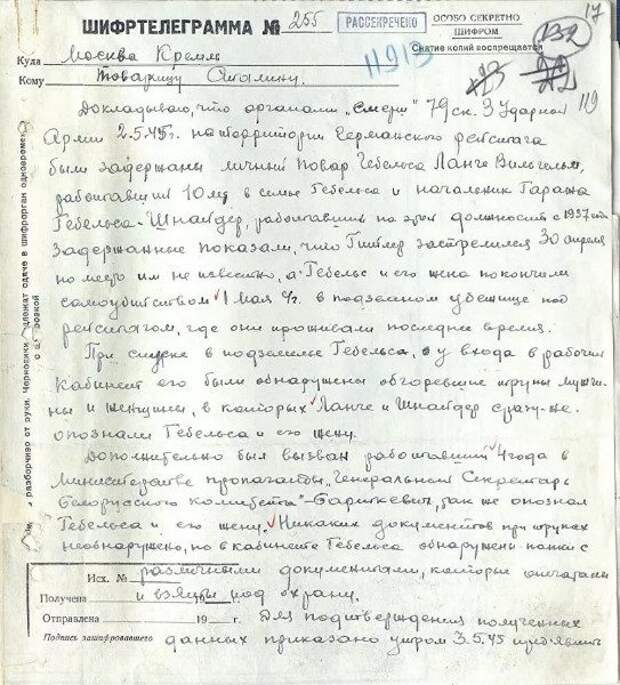 17
ШИФРТЕЛЕГРАММА № 255
РАССЕКРЕЧЕНО
ОСОБО СЕКРЕТНО
ШИФРОМ
Снятие копий воспрещается
132
Куда Москва Кремль
Кому Товарищу Сталину.
11913
119
Докладываю, что органами „Смерш" 79 ск. 3 Ударной
Армии 2.5.45г. на территории Германского рейхстага
были задержаны личный повар Гебельса Ланге Вильгельм,
работавший 10 лет в семье Гебельса и начальник Гаража
Гебельса - Шнайдер, работавший на этой должности с 1937 года
Задержанные показали, что Гитлер застрелился 30 апреля
но место им не известно, а Гебельс и его жена покончили
самоубийством 1 мая с/г. в подземном убежище под
рейхстагом, где они проживали последнее время.
При спуске в подземелье Гебельса, у входа в рабочий
кабинет его были обнаружены обгоревшие трупы мужчи-
ны и женщины, в которых Ланге и Шнайдер сразу-же
опознали Гебельса и его жену.
Дополнительно был вызван работавший 4 года в
министерстве пропаганды „Генеральный Секретарь
Белорусского комитета" - так же опознал
Гебельса и его жену. Никаких документов при трупах
необнаружено, но в кабинете Гебельса обнаружены папки с
различными документами, которые опечатаны
и взяты под охрану.
Для подтверждения полученных
данных приказано утром 3.5.45 предъявить
Исх. №
Получена
Отправлена 19 г.
Подпись зашифровавшего
разборчиво от руки. Черновики лежат сдаче в шифрорган одновреме